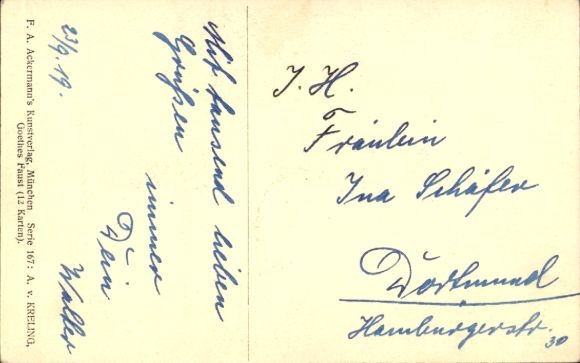 23/9.19.
Mit tausend lieben
Grüßen
immer
Dein
Walter
F. A. Ackermann's Kunstverlag, München. Serie 167: A. v. KRELING,
Goethes Faust (12 Karten).
I. H.
Fräulein
Ina Schäfer
Dortmund
Hamburgerstr.
30